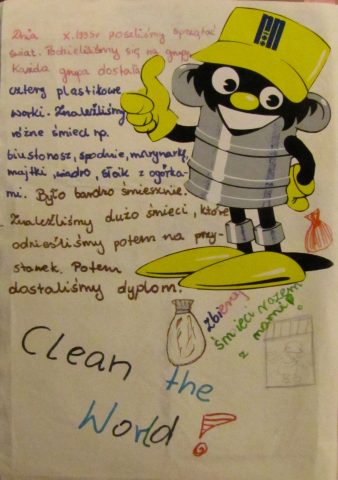 Dnia x. 1995r poszliśmy sprzątać
świat. Podzieliliśmy się na grupy.
Każda grupa dostała
cztery plastikowe
worki. Znaleźliśmy
różne śmieci np.
biustonosz, spodnie, marynarkę,
majtki, wiadro, słoik z ogórka-
mi. Było bardzo śmiesznie.
Znaleźliśmy dużo śmieci, które
odnieśliśmy potem na przy-
stanek. Potem
dostaliśmy dyplom.
zbieraj
śmieci razem
z nami!
Clean
the
World!